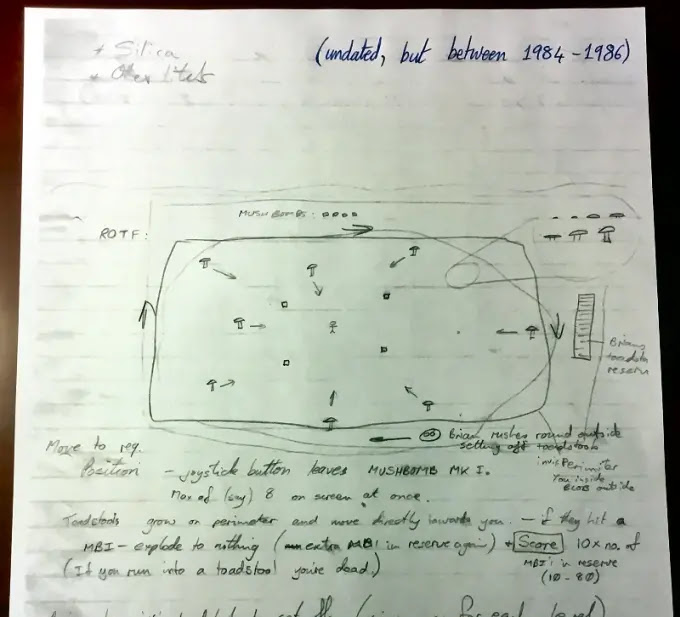 * Silica
* Other
(undated, but between 1984-1986)
MUSHBOMBS:
ROTF:
Brians
toadstool
reserve
Brian rushes round outside
setting off toadstools
Perimeter
You inside
outside
Move to req.
Position - joystick button leaves MUSHBOMB MK I.
Max of (say) 8 on screen at once.
Toadstools grow on perimeter and move directly towards you. - if they hit a
MBI - explode to nothing (extra MBI in reserve again) + Score 10 x no. of
MBI's in reserve
(10-80)
(If you run into a toadstool you're dead.)